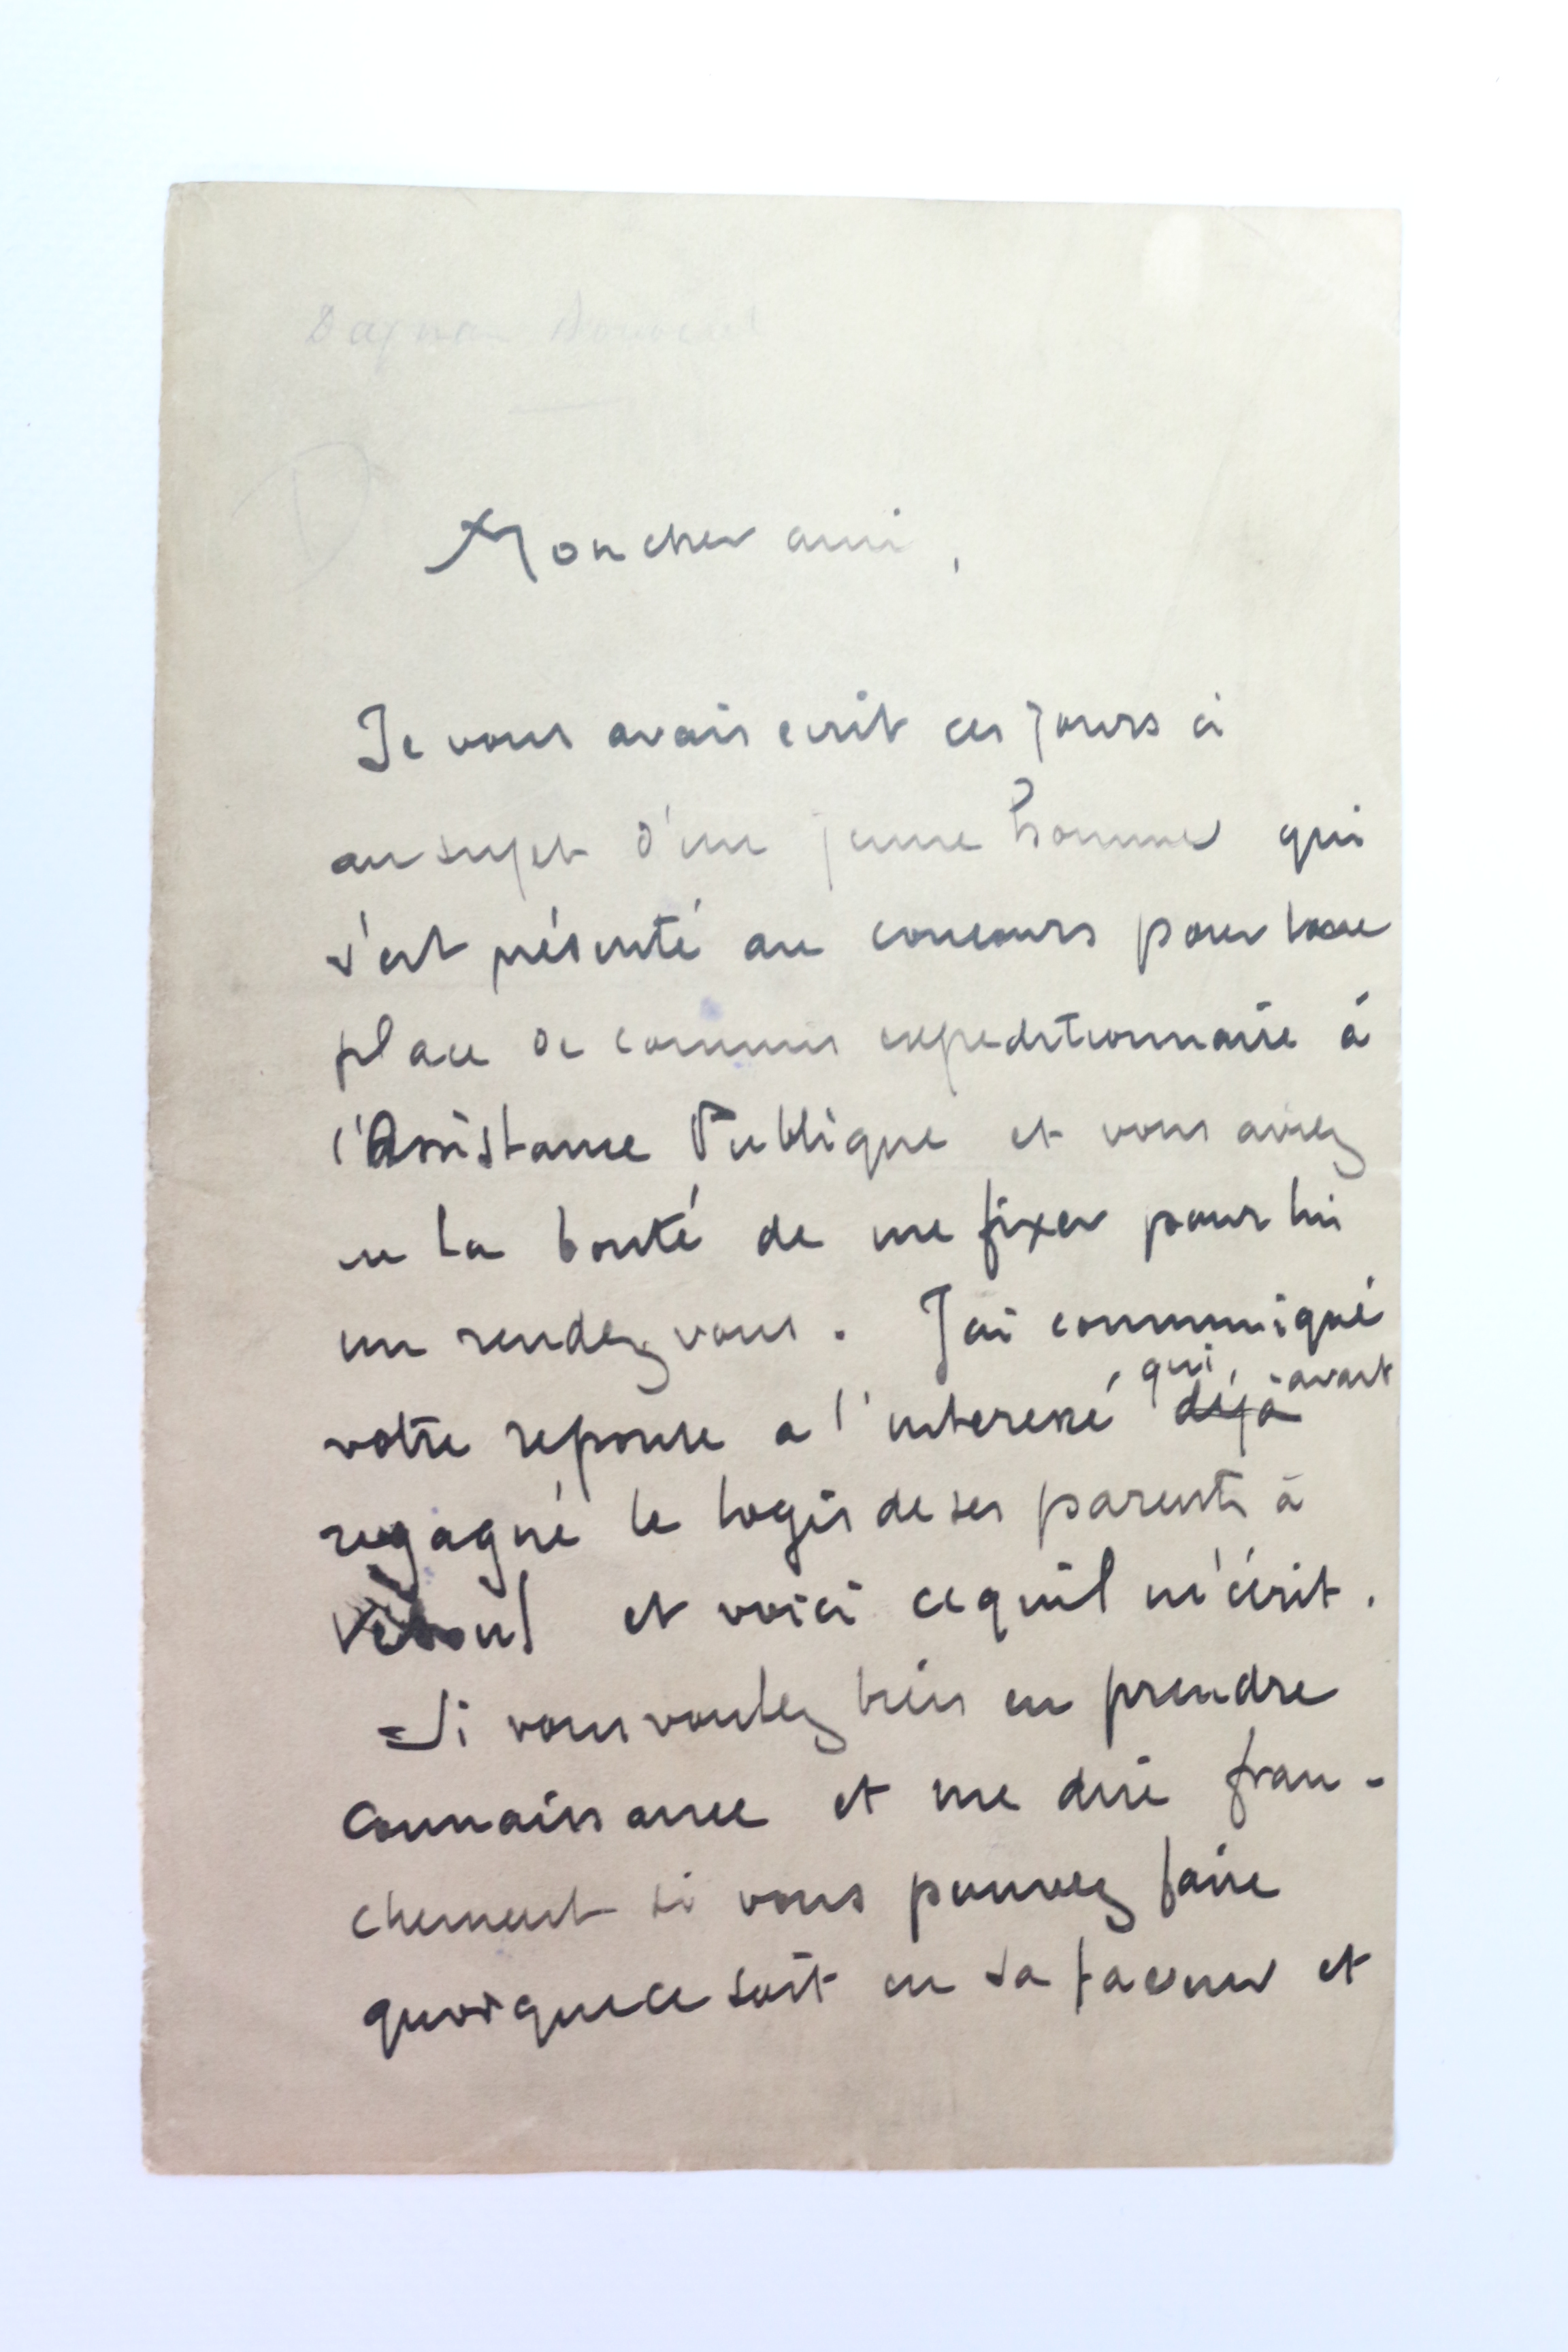 Dagnan Bouveret
D
Mon cher ami,
Je vous avais ecrit ces jours ci
au sujet d'un jeune homme qui
s'est présenté au concours pour une
place de commis expeditionnaire à
l'Assistance Publique et vous aviez
eu la bonté de me fixer pour lui
un rendez vous. J'ai communiqué
votre reponse a l'interessé qui déjà avait
regagné le logis de ses parents à
Vesoul et voici ce qu'il m'écrit.
Si vous voulez bien en prendre
connaissance et me dire fran-
chement si vous pouvez faire
quoique ce soit en sa faveur et